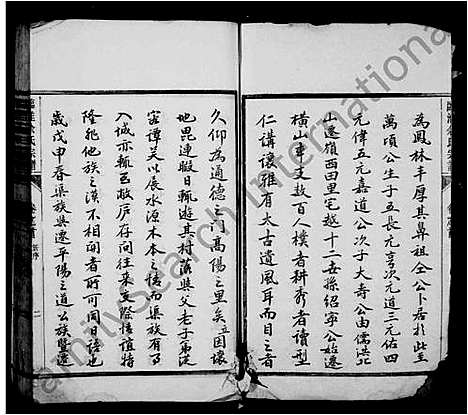 為鳳林丰厚其鼻祖全公卜居於此至
萬頃公生子五長元亨次元道三元佑四
元偉五元嘉道公次子大壽公由儒洪北
山遷嶺西田里宅越十二世孫紹寧公始遷
橫山聿文数百人樸者耕秀者讀型
仁講讓雅有太古遺風耳而目之者
久仰為通德之門高陽之里矣玉因壤
地毘連暇日輒遊其村落與父老子弟從
容譚笑以展水源木本之情而渠族有事
入城亦輒至敝庐存问往來至際情誼特
隆非他族之漠不相闻者所可同日語也
歲戊申春渠族與遷平陽之道公族暨遷
familysearch international